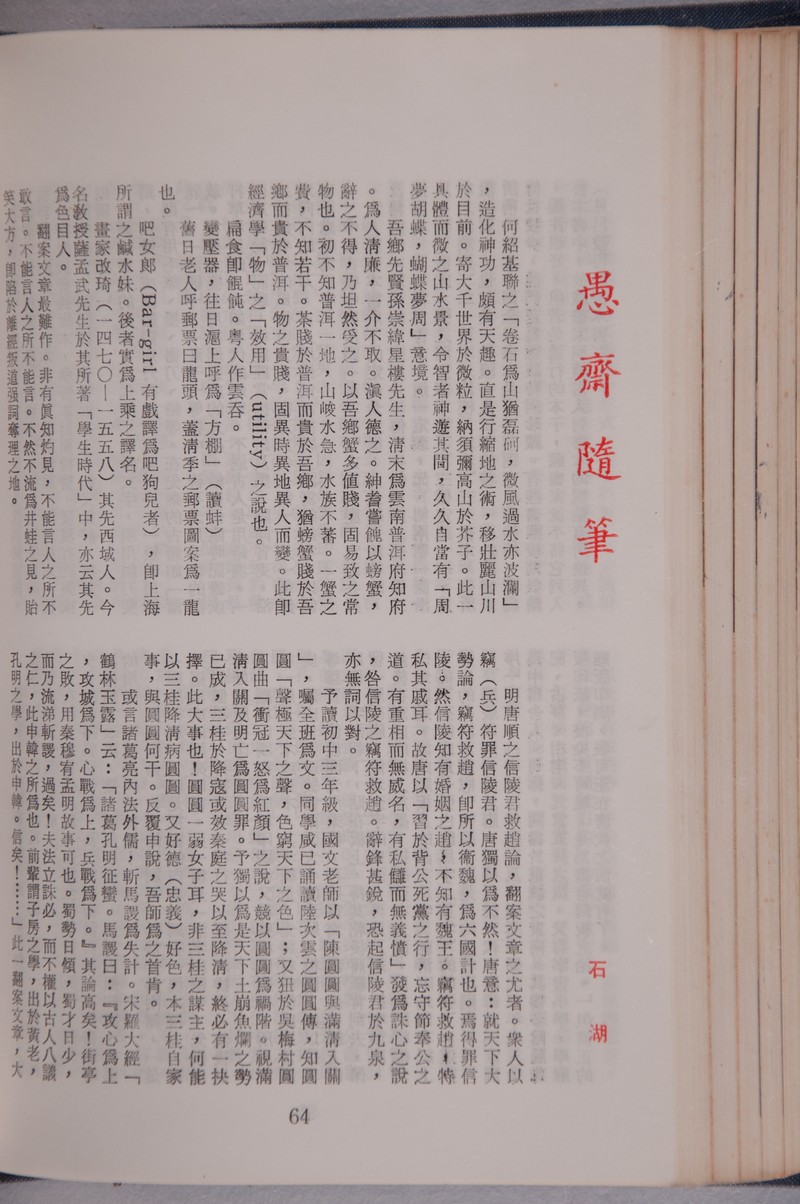 愚齋隨筆
石湖
何紹基聯之「卷石爲山猶磊砢，微風過水亦波瀾」
，造化神功，頗有天趣。直是行縮地之術，移壯麗山川
於目前。寄大千世界於微粒，納須彌高山於芥子。此一
具體而微之山水景，令智者神遊其間，久久自當有「周
夢胡蝶，蝴蝶夢周」意境。
吾鄉先賢孫崇緯星樓先生，淸末爲雲南普洱府知府
。爲人淸廉，一介不取。滇人德之。紳耆嘗餽以螃蟹，
辭之不得，乃坦然受之。以吾鄉蟹多値賤，固易致之常
物也。初不知普洱一地，山峻水急，水族不蕃。一蟹之
費，不知若干。茶賤於普洱而貴於吾鄉，猶螃蟹賤於吾
鄉而貴於普洱。物之貴賤，固異時異地異人而變。此卽
經濟學「物」之「效用」（utility）之說也。
扁食卽餛飩。粤人作雲吞。
變壓器，往日滬上呼爲「方棚」（讀蚌）
舊日老人呼郵票曰龍頭，蓋淸季之郵票圖案爲一龍
也。
吧女郞（Bar-girl 有戲譯爲吧狗兒者），卽上海
所謂之鹹水妹。後者實爲上乘之譯名。
畫家改琦（一四七〇—一五五八）其先西域人。今
名敎授薩孟武先生於其所著「學生時代」中，亦云其先
爲色目人。
翻案文章最難作。非有眞知灼見，不能言人之所不
敢言。不能言人之所不能言。不然不流爲井蛙之見，貽
笑大方，卽陷於離經叛道强詞奪理之地。
明唐順之信陵君救趙論，翻案文章之尤者。衆人以
竊（兵）符罪信陵君。唐獨以爲不然！唐意：就天下大
勢論，竊符救趙，卽所以衞魏，爲六國計也。焉得罪信
陵。然信陵知有婚姻之趙，不知有魏王。竊符救趙，特
私其戚耳。故唐以「習於背公死黨之行，忘守節奉公之
道。有重相而無威君，有私讎而無義憤」發爲誅心之說
，咎信陵之竊符救趙。辭鋒甚銳，恐起信陵君於九泉，
亦無詞以對。
予讀初中三年級，國文老師以「陳圓圓與滿淸入關
」，囑全班爲文。同學咸已誦讀陸次雲之圓圓傳，知圓
圓「聲極天下之聲，色窮天下之色」；又狃於吳梅村圓
圓曲「衝冠一怒爲紅顏」之說，競以圓圓爲禍階。視滿
淸入關及明亡爲圓圓罪。予獨以爲是天下土崩魚爛之勢
已成，三桂於降寇或效秦庭之哭以至降淸，終必有一抉
擇。此大事也！圓圓一弱女子耳，非三桂之謀主，何能
以三桂降淸病圓圓。又好德（忠義）好色，本三桂自家
事，與圓圓何干。反覆申說，吾師爲之首肯。
或言諸葛亮內法外儒，斬馬謖爲失計。宋羅大經「
鶴林玉露」云：「諸葛孔明征蠻。馬謖曰：『攻心爲上
，攻城爲下。心戰爲上，兵戰爲下。』其論高矣！街亭
之敗，用秦穆宥孟明故事可也。蜀勢日傾，蜀才日少，
而乃流涕斬謖，過矣！夫法立誅必，而不權以古人八議
之仁，此申韓之所爲也。前輩謂子房之學，出於黃老，
孔明之學，出於申韓。信矣！……」此一翻案文章，大
64